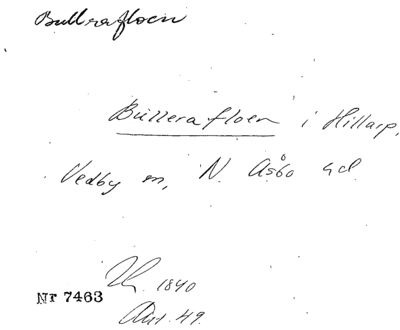 Bullrafloen
Bullerafloen i Hillarp,
Vedby sn, N. Åsbo hd
1840
Nr 7463
Ant. 49.